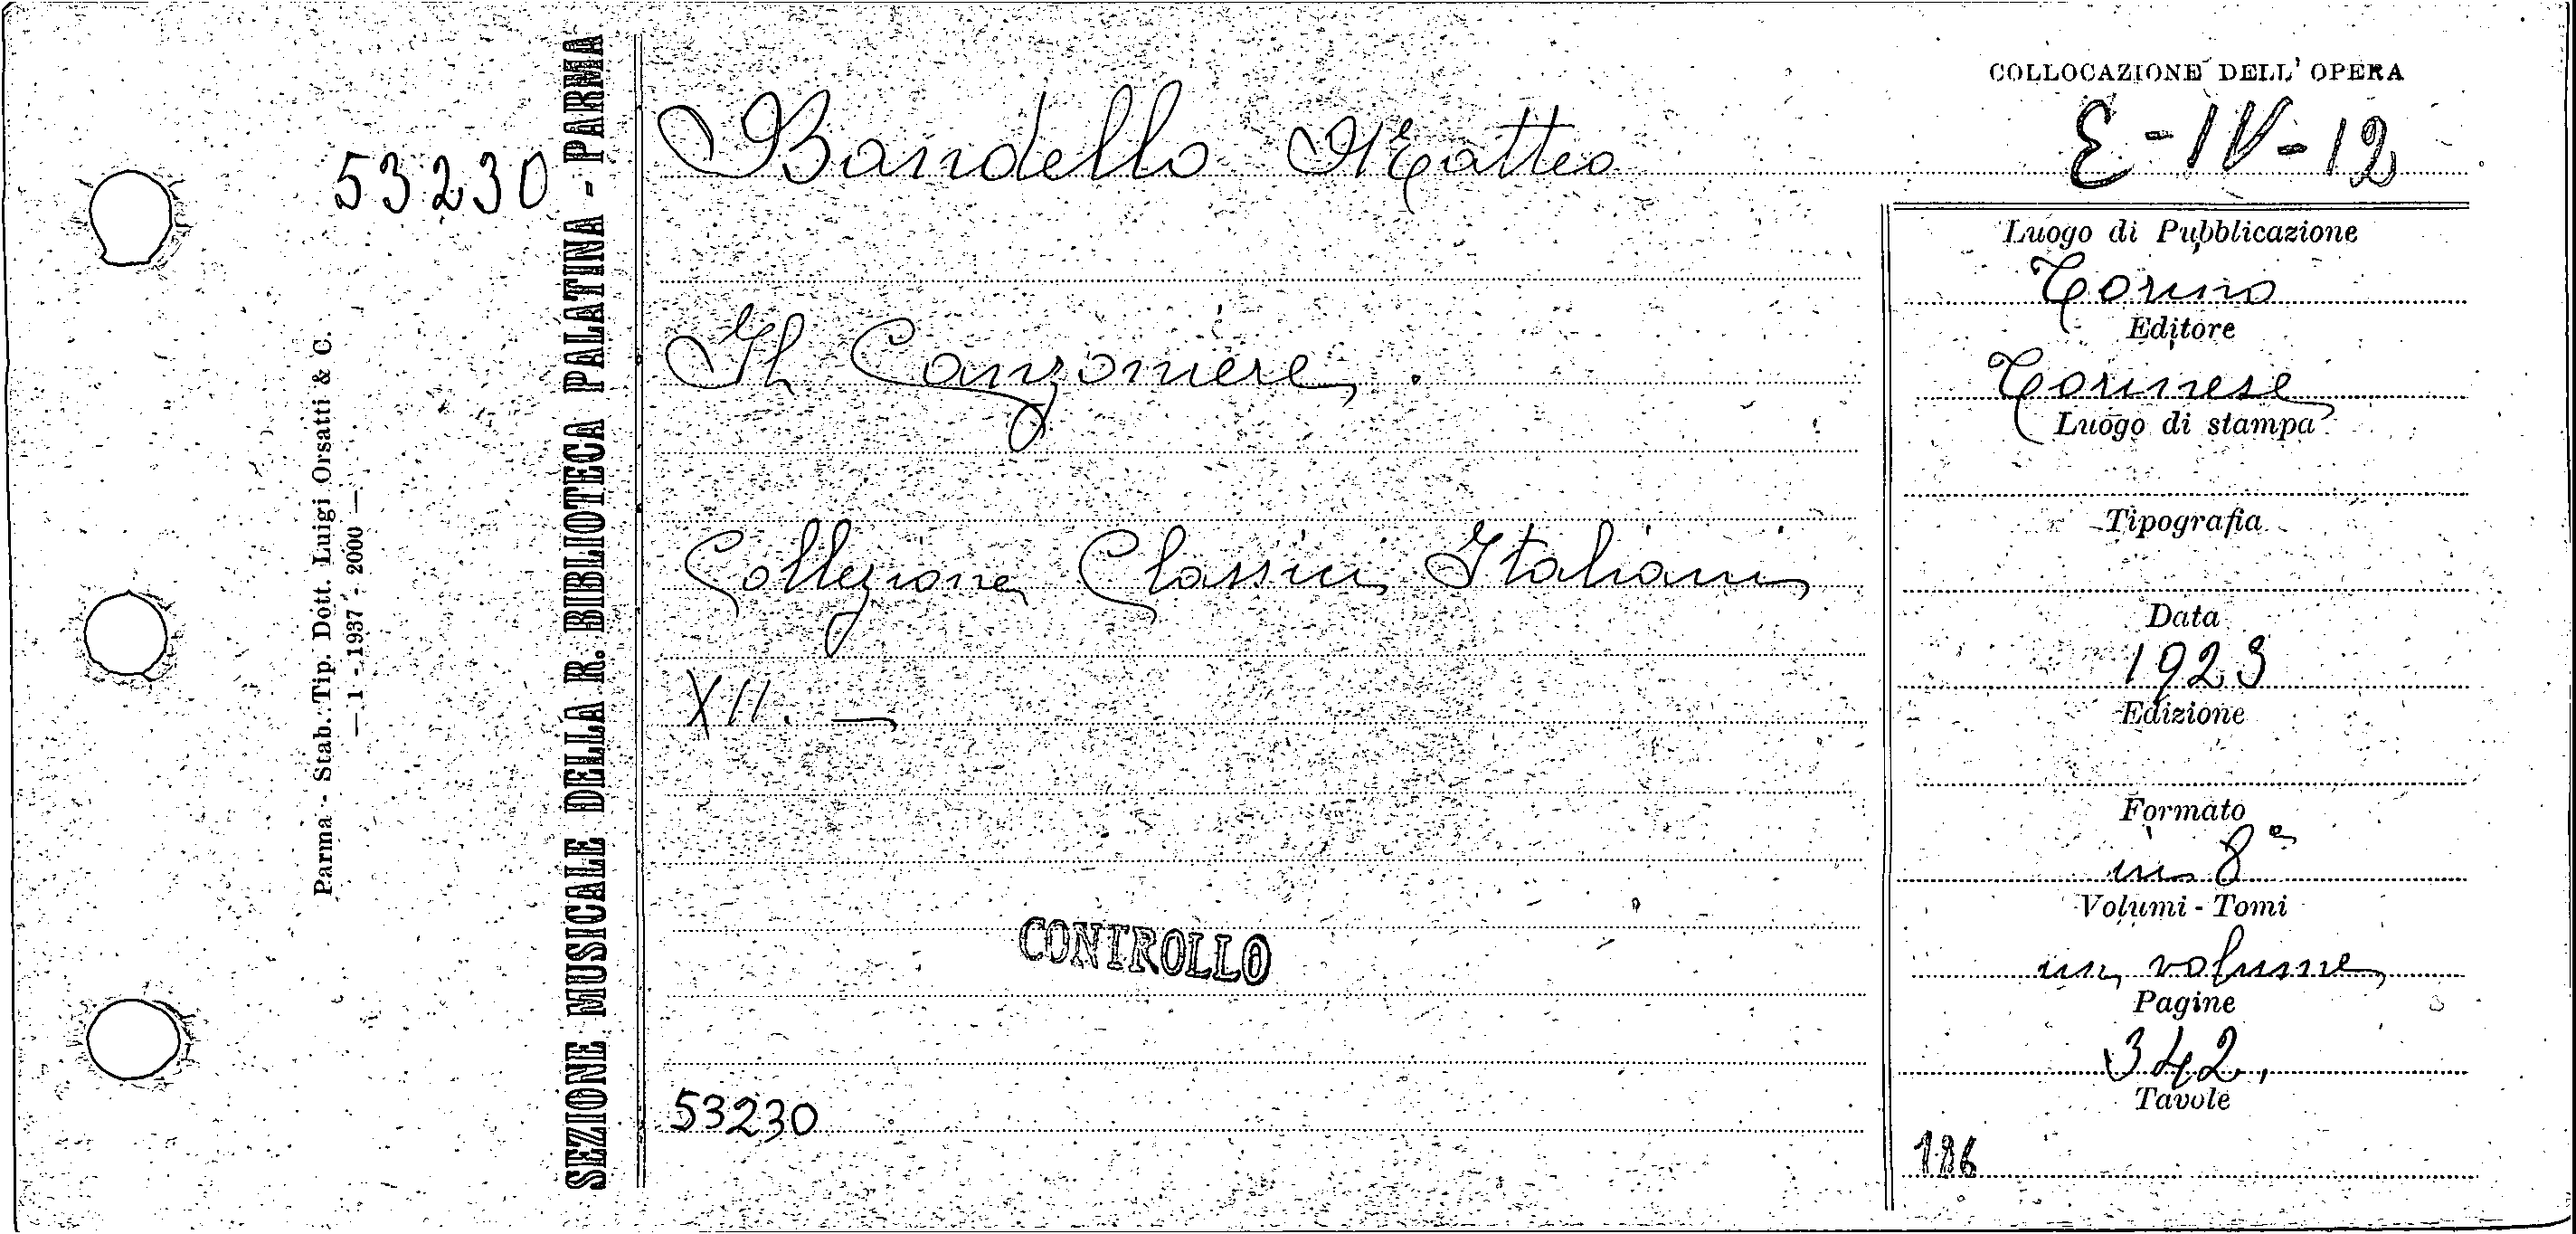 53230
Parma - Stab. Tip. Dott. Luigi Orsatti & C.
— 1 - 1937 - 2000 —
SEZIONE MUSICALE DELLA R. BIBLIOTECA PALATINA - PARMA
Bandello Matteo
Il Canzoniere.
Collezione Classici Italiani
XII. —
CONTROLLO
53230
COLLOCAZIONE DELL' OPERA
E-IV-12
Luogo di Pubblicazione
Torino
Editore
Torinese
Luogo di stampa
Tipografia
Data
1923
Edizione
Formato
in 8°
Volumi - Tomi
un volume
Pagine
342,
Tavole
186